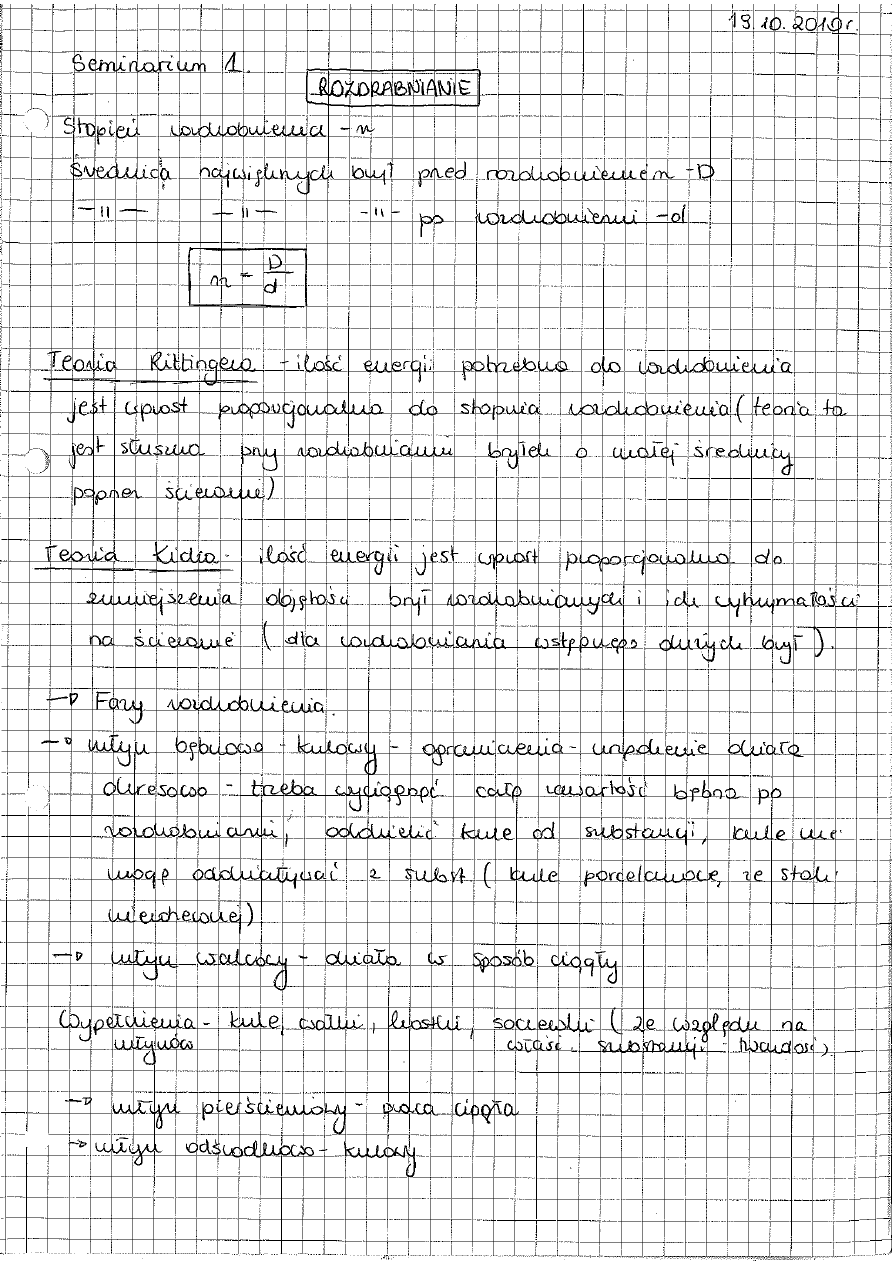 19.10.2010r.
Seminarium 1.
ROZDRABNIANIE
Stopień rozdrobnienia - n
Średnica największych brył przed rozdrobnieniem - D
-"- -"- -"- po rozdrobnieniu - d
n = D/d
Teoria Rittingera - ilość energii potrzebna do rozdrobnienia
jest wprost proporcjonalna do stopnia rozdrobnienia (teoria ta
jest słuszna przy rozdrabnianiu bryłek o małej średnicy
poprzez ścieranie)
Teoria Kicka - ilość energii jest wprost proporcjonalna do
zmniejszenia objętości brył rozdrabnianych i ich wytrzymałości
na ścieranie (dla rozdrabniania wstępnego dużych brył).
→ Fazy rozdrobnienia.
→ młyn bębnowo - kulowy - ograniczenia - urządzenie działa
okresowo - trzeba wyciągnąć całą zawartość bębna po
rozdrabnianiu, oddzielić kule od substancji, kule nie
mogą oddziaływać z subst (kule porcelanowe, ze stali
nierdzewnej)
→ młyn walcowy - działa w sposób ciągły
Wypełnienia - kule, wałki, kostki, soczewki (ze względu na
młynów właść. substancji - twardość)
→ młyn pierścieniowy - praca ciągła
→ młyn odśrodkowo - kulowy